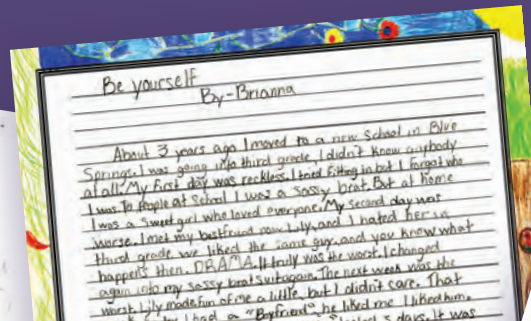 Be yourself
By-Brianna
About 3 years ago I moved to a new School in Blue
Springs. I was going into third grade, I didn't know anybody
at all. My first day was reckless. I tried fitting in but I forgot who
I was. To people at School I was a sassy brat. But at home
I was a sweet girl who loved everyone. My second day was
worse. I met my bestfriend now Lily, and I hated her in
third grade we liked the same guy, and you know what
happens then. DRAMA. It truly was the worst. I changed
again into my sassy brat suit again. The next week was the
worst. Lily made fun of me a little, but I didn't care. That
I had a "Boyfriend", he liked me I liked him.
5 days. It was